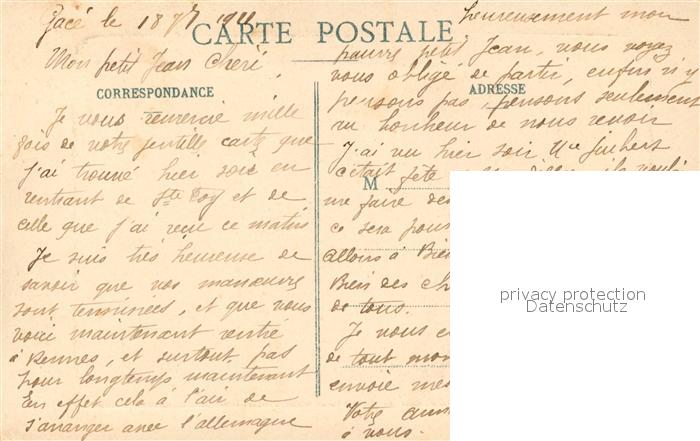 Gacé le 18 7bre 1911
CARTE POSTALE
Mon petit Jean Chéri,
CORRESPONDANCE
Je vous remercie mille
fois de votre gentille carte que
j'ai trouvé hier soir en
rentrant de Ste Foy et de
celle que j'ai reçu ce matin
Je suis très heureuse de
savoir que vos manœuvres
sont terminées, et que vous
voici maintenant rentré
à Rennes, et surtout pas
pour longtemps maintenant
En effet cela à l'air de
s'arranger avec l'allemagne
heureusement mon
pauvre petit Jean, vous voyez
vous obligé de partir, enfin n'y
ADRESSE
pensons pas, pensons seulement
au bonheur de nous revoir
J'ai vu hier soir
c'était fête
M
me faire des
ce sera pour
allons à
Bien des
de tous.
Je vous
de tout mon
envoie mes
Votre
à vous.
privacy protection
Datenschutz